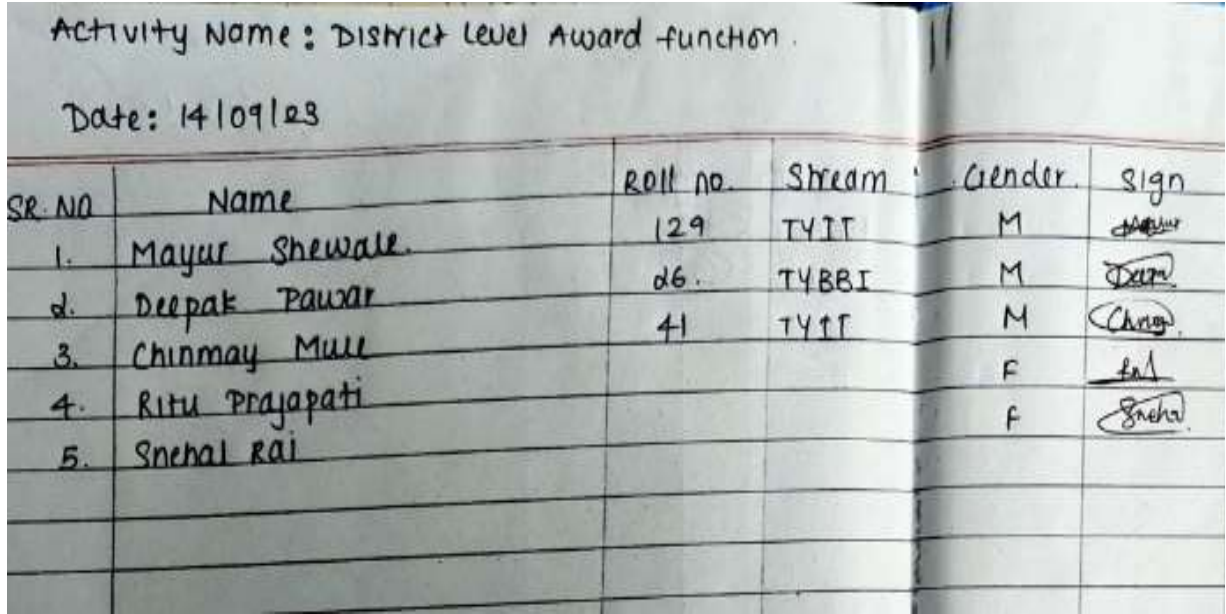 Activity Name: District Level Award function.
Date: 14/09/23
SR. NO Name Roll no. Stream Gender. Sign
1. Mayur Shewale. 129 TYIT M
2. Deepak Pawar 26. TYBBI M
3. Chinmay Mule 41 TYIT M
4. Ritu Prajapati F
5. Snehal Rai F Sneha